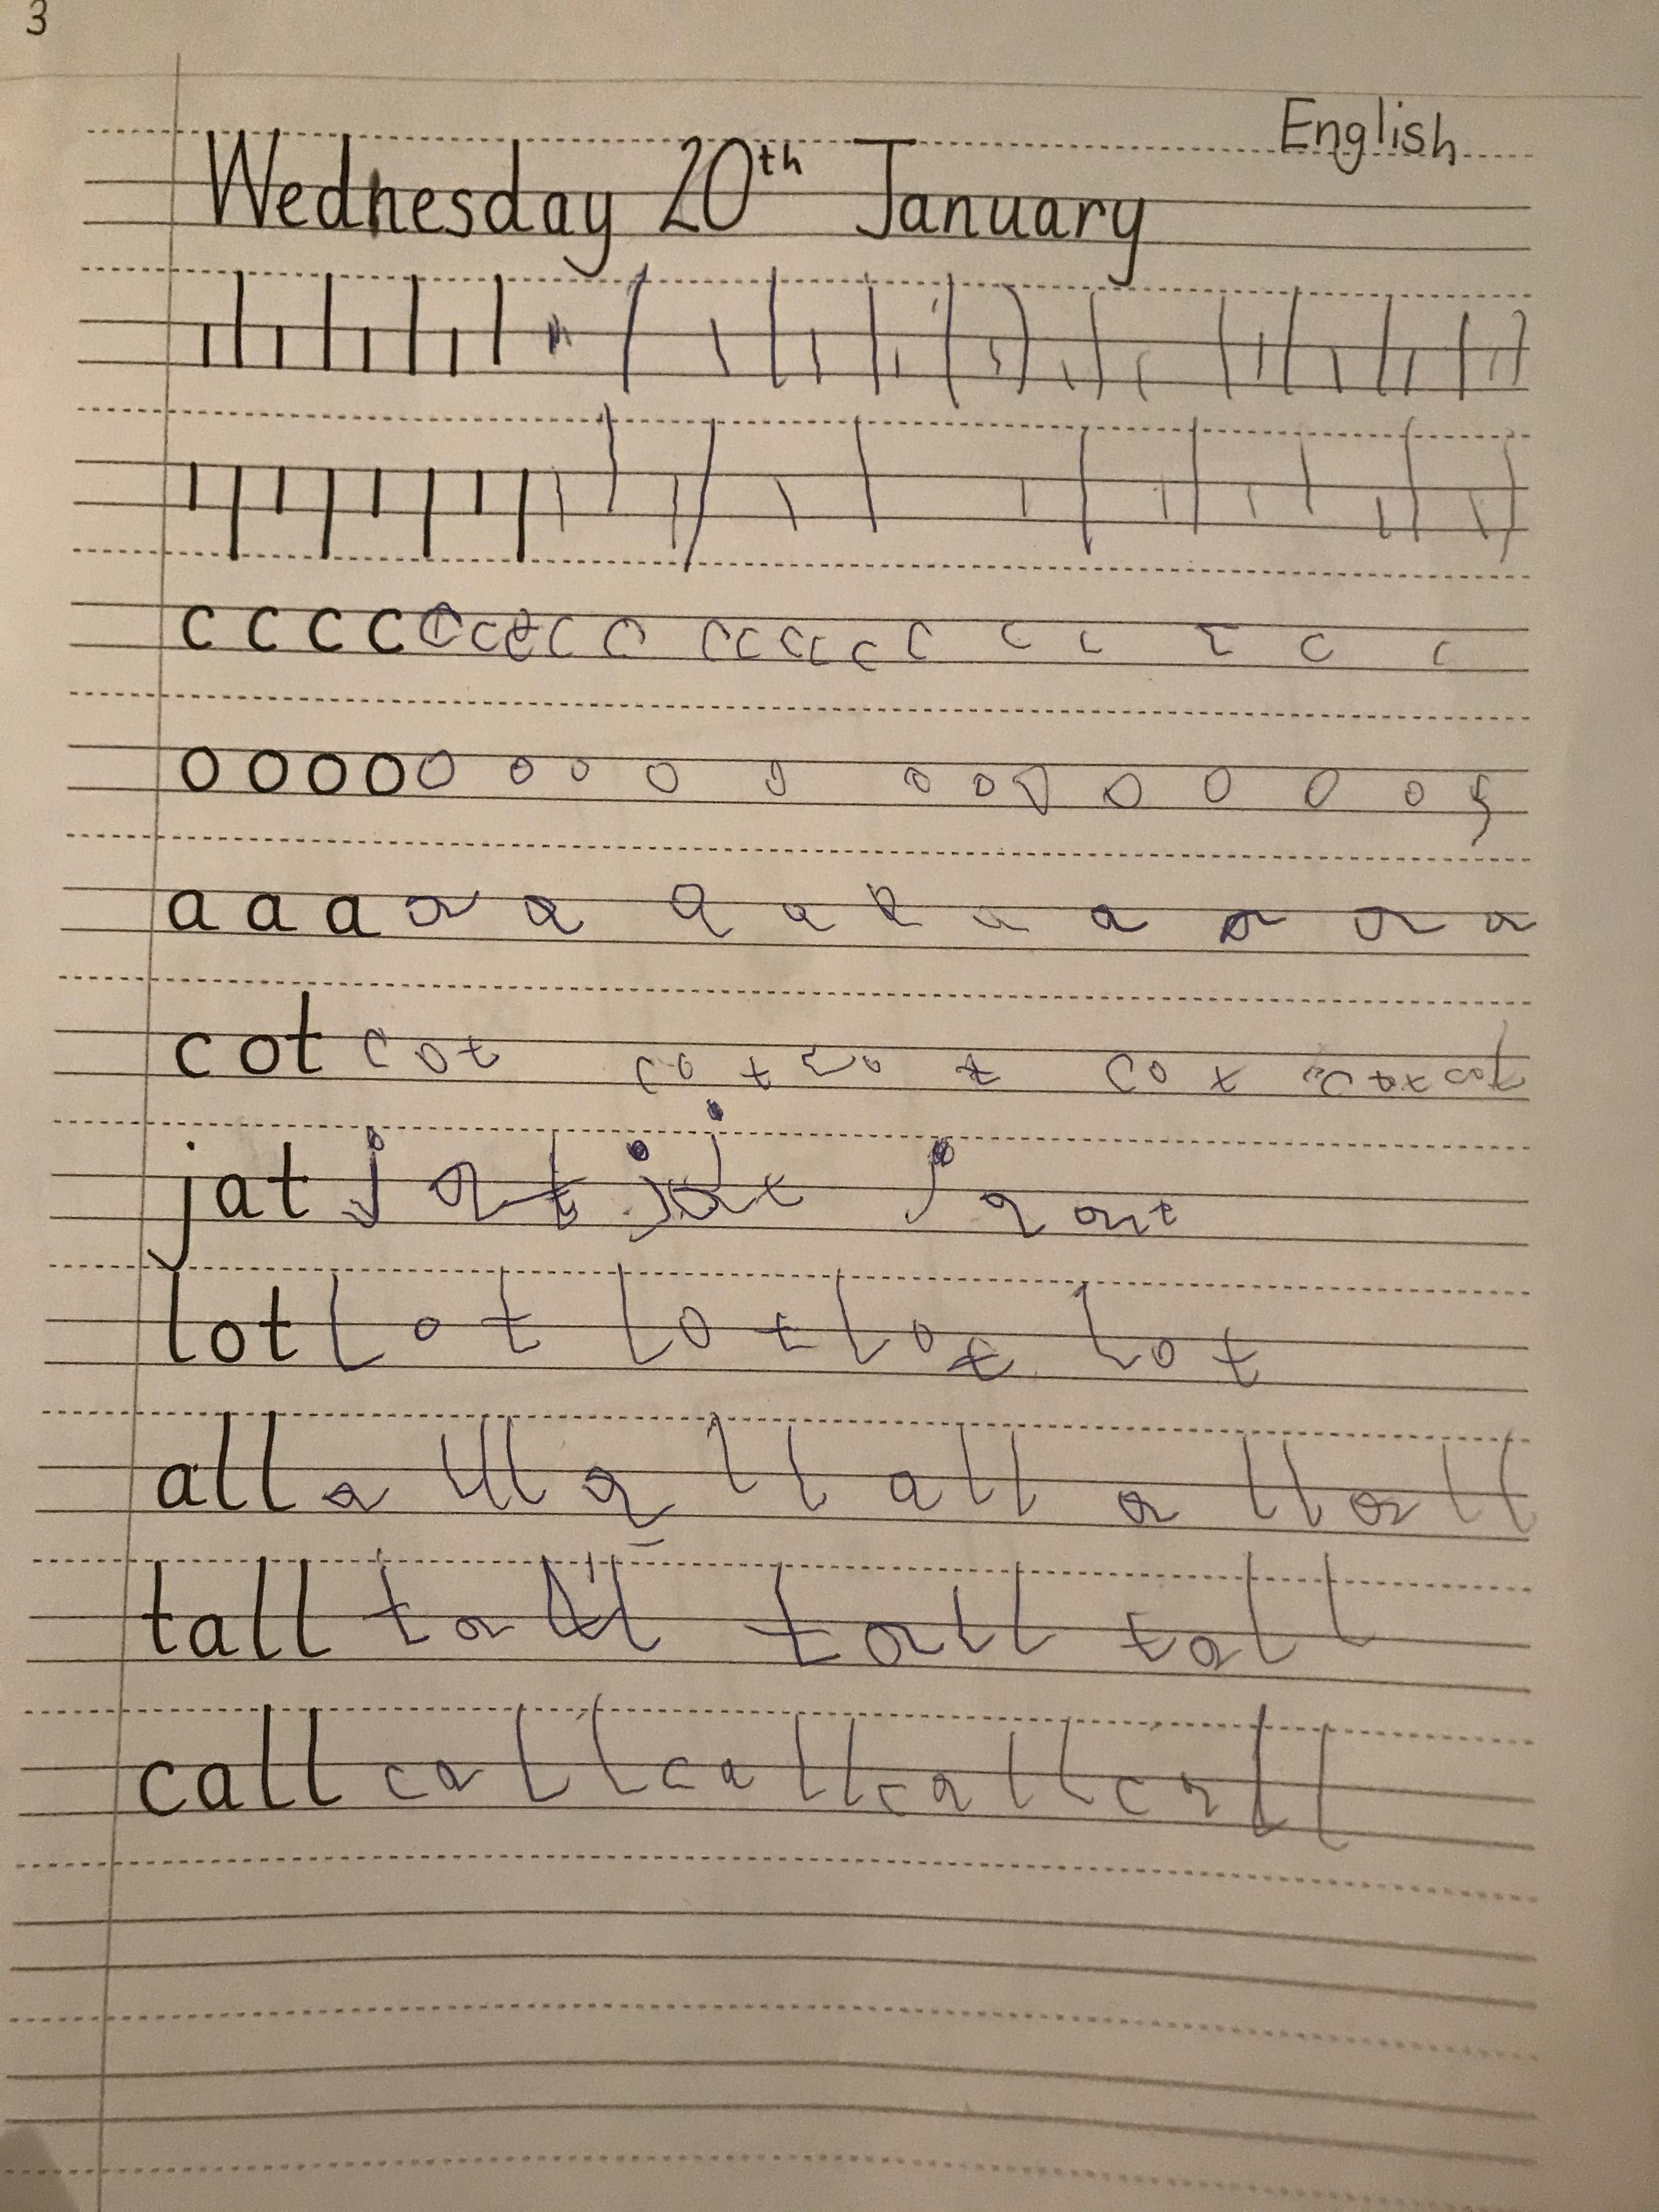 3
English
Wednesday 20th January
c c c c c c c c c c c c c c c c c c c c c
o o o o o o o o o o o o o o o o
a a a a a a a a a a a a a
cot cot cot co t cot cot
jat jat j a
lot lot lot lot lot
all a ll all all all all
tall tall tall tall
call call call call call